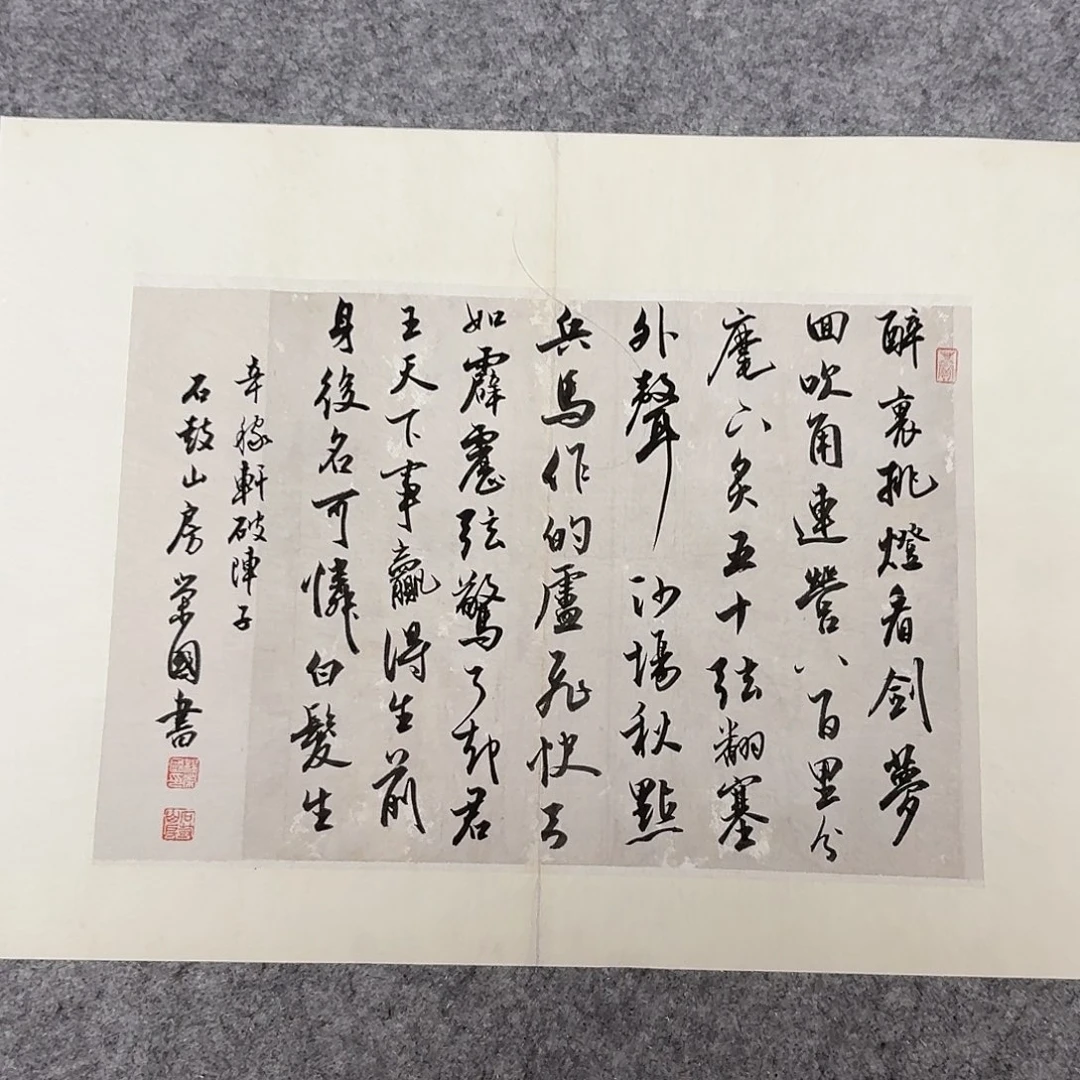 醉裏挑燈看劍夢
回吹角連營八百里分
麾下炙五十弦翻塞
外聲沙場秋點
兵馬作的盧飛快弓
如霹靂弦驚了却君
王天下事贏得生前
身後名可憐白髮生
辛稼軒破陣子
石鼓山房榮國書
石鼓山房